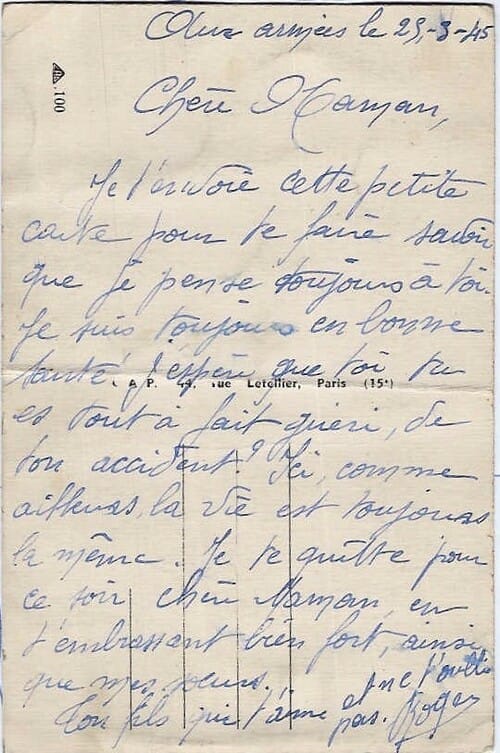 Aux armées le 25-3-45
100
Chère Maman,
Je t'envoie cette petite
carte pour te faire savoir
que je pense toujours à toi.
Je suis toujours en bonne
santé j'espère que toi tu
A P. 44, rue Letellier, Paris (15e)
es tout à fait guéri, de
ton accident? Ici, comme
ailleurs, la vie est toujours
la même. Je te quitte pour
ce soir chère Maman, en
t'embrassant bien fort, ainsi
que mes soeurs.
Ton fils qui t'aime et ne t'oublie
pas. Roger